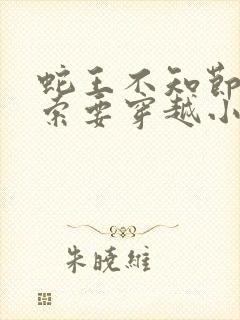 蛇王不知節
索要穿越小
朱曉維